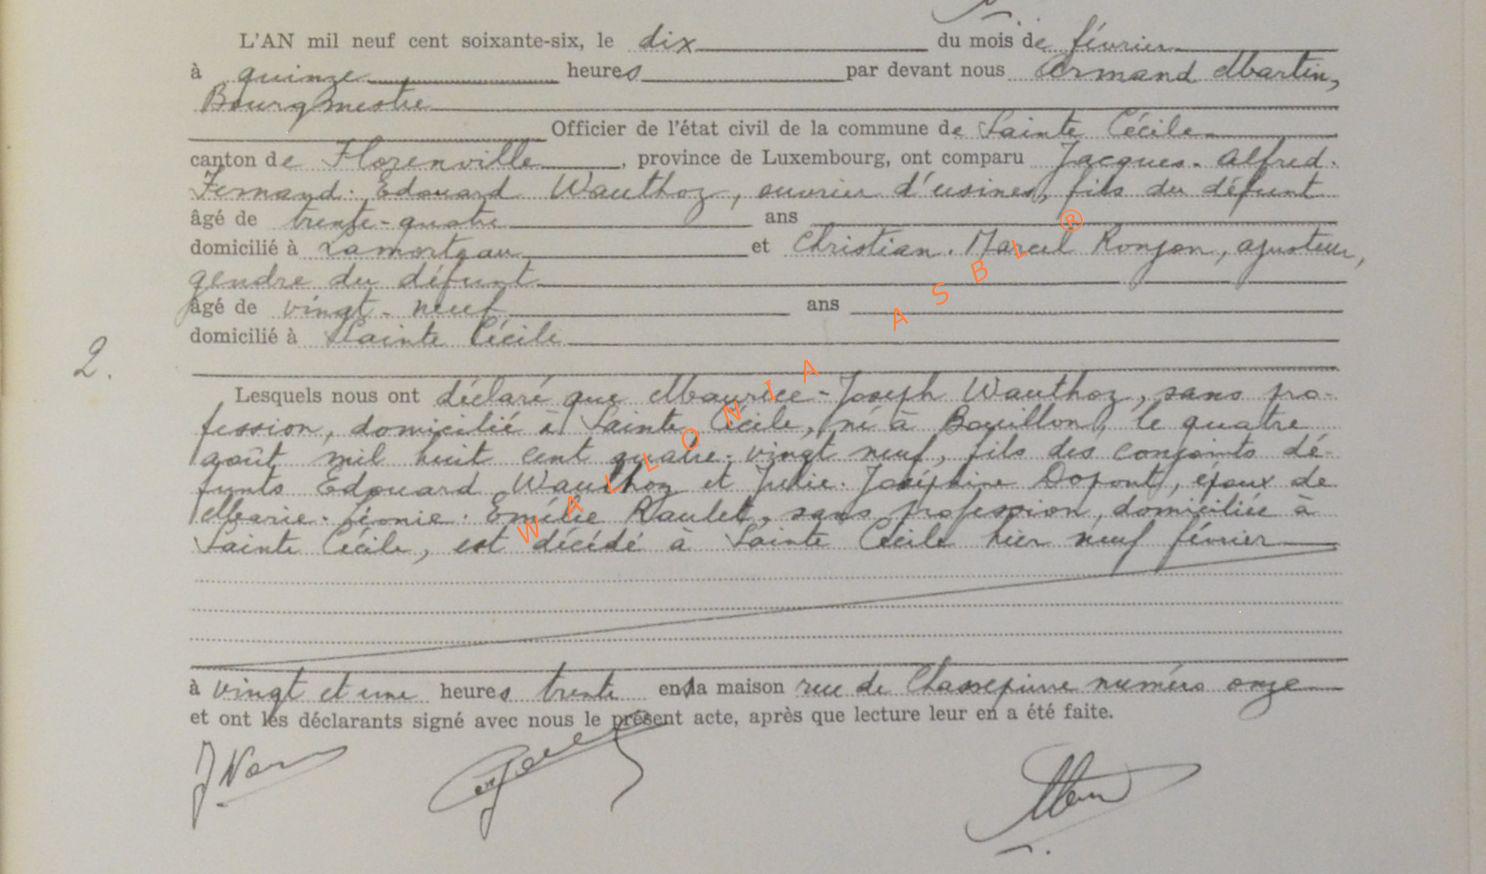 L'AN mil neuf cent soixante-six, le dix du mois de février
à quinze heures par devant nous Armand Martin,
Bourgmestre
Officier de l'état civil de la commune de Sainte Cécile
canton de Florenville, province de Luxembourg, ont comparu Jacques-Alfred-
Fernand-Edouard Wauthoz, ouvrier d'usines, fils du défunt
âgé de trente-quatre ans
domicilié à Lamorteau et Christian-Marcel Ronjon, ajusteur,
gendre du défunt
âgé de vingt-neuf ans
domicilié à Sainte Cécile
2.
Lesquels nous ont déclaré que Maurice-Joseph Wauthoz, sans pro-
fession, domicilié à Sainte Cécile, né à Bouillon, le quatre
août mil huit cent quatre-vingt neuf, fils des conjoints dé-
funts Edouard Wauthoz et Julie-Joséphine Dopont, époux de
Marie-Léonie-Emélie Raulet, sans profession, domiciliée à
Sainte Cécile, est décédé à Sainte Cécile hier neuf février
à vingt et une heures trente en sa maison rue de Chassepierre numéro onze
et ont les déclarants signé avec nous le présent acte, après que lecture leur en a été faite.
WALLONIA ASBL ®